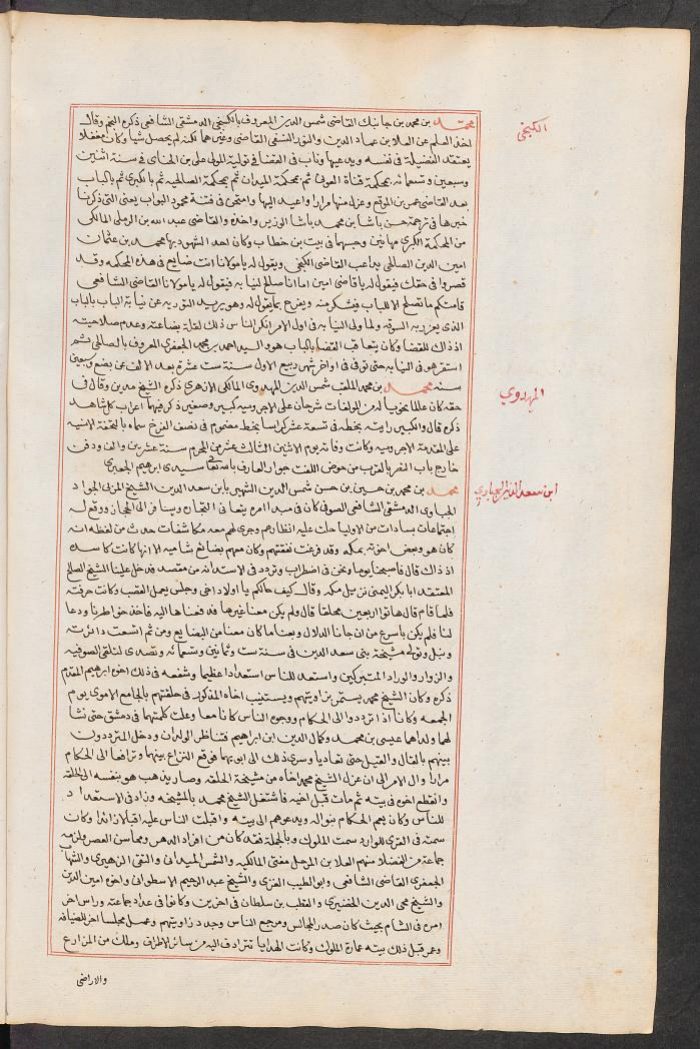 محمد بن محمد بن جانبك القاضي شمس الدين المعروف بالكبخي الدمشقي الشافعي ذكره النجم وقال
الكبخي
اخذ العلم عن العلا بن عماد الدين والنور النسفي القاضي وغيرهما لكنه لم يحصل شيا وكان مغفلا
يعتقد الفضيلة في نفسه ويدعيها وناب في القضا في تولية المولى علي بن الحناي في سنة اثنين
وسبعين وتسعمائه بمحكمة قناة العوني ثم بمحكمة الميدان ثم بمحكمة الصالحية ثم بالكبرى ثم بالباب
بعد القاضي شمس بن الموقع وعزل منها مرارا واعيد اليها وامتحن في فتنة محمود البواب يعني التي ذكرنا
خبرها في ترجمة حسن باشا بن محمد باشا الوزير واخذه والقاضي عبد الله بن الرملي المالكي
من المحكمة الكبرى مهانين وحبسهما في بيت بن خطاب وكان احد الشهود بها محمد بن عثمان
امين الدين الصالحي يداعب القاضي الكبخي ويقول له يا مولانا انت ضايع في هذه المحكمه وقد
قصروا في حقك فيقول له يا قاضي امين اما انا صلح لنيابه فيقول له يا مولانا القاضي الشافعي
قامتكم ما تصلح الا للباب فيشكر منه ويفرح بما يقول له وهو يريد التوريه عن نيابة الباب بالباب
الذي يعزر به السوقه ولما ولي النيابه في اول الامر انكر الناس ذلك لقلة بضاعته وعدم صلاحيته
اذ ذاك للقضا وكان يتعاقب القضا بالباب هو والسيد احمد بن محمد الجعفري المعروف بالصالحي ثم
استقر هو في النيابه حتى توفي في اواخر شهر ربيع الاول سنة ست عشرة بعد الالف عن بضع وسبعين
سنه محمد بن محمد الملقب شمس الدين المهدوي المالكي الازهري ذكره الشيخ مدين وقال في
المهدوي
حقه كان عالما نحويا له من المولفات شرحان على الاجروميه كبير وصغير ذكر فيهما اعراب كل شاهد
ذكره قال والكبير رايته بخطه في تسعة عشر كراسا بخط مضموم في نصف الفرخ سماه بالتحفة الانسيه
على المقدمة الاجروميه وكانت وفاته يوم الاثنين الثالث عشر من المحرم سنة عشرين والف ودفن
خارج باب النصر بالقرب من حوض اللفت جوار العارف بالله تعالى سيدي ابراهيم الجعبري
محمد بن محمد بن حسين بن حسن شمس الدين الشهير بابن سعد الدين الشيخ المربي الجواد
ابن سعد الدين الجباوي
الجباوي الدمشقي الشافعي الصوفي كان في مبدا امره يتعانى التجاره ويسافر الى الحجاز ووقع له
اجتماعات بسادات من الاوليا حلت عليه انظارهم وجرى لهم معه مكاشفات حدث من لفظه انه
كان هو وبعض اخوته بمكه وقد فرغت نفقتهم وكان معهم بضائع شاميه الا انها كانت كاسده
اذ ذاك قال فاصبحنا يوما ونحن في اضطراب وتردد في الاستدانه من مقسد فدخل علينا الشيخ الصالح
المعتقد ابا بكر اليمني نزيل مكه وقال كيف حالكم يا اولاد اخي وجلس يعمل القصب وكانت حرفته
فلما قام قال هاتوا اربعين محلقا قال ولم يكن معنا غيرها فدفعناها اليه فاخذ خواطرنا ودعا
لنا فلم يكن باسرع من ان جانا الدلال وبعنا ما كان معنا من البضايع ومن ثم اتسعت دائرته
ونبل وتولى مشيخة بني سعد الدين في سنة ست وثمانين وتسعمائه وتصدى لتلقي الصوفيه
والزوار والوراد المتبركين واستعد للناس استعدادا عظيما وشفعه في ذلك اخوه ابراهيم المقدم
ذكره وكان الشيخ محمد يستمر بزاويتهم ويستنيب اخاه المذكور في حلقتهم بالجامع الاموي يوم
الجمعه وكانا اذا ترددوا الى الحكام ووجوه الناس كانا معا وعلت كلمتهما في دمشق حتى نشا
لهما ولداهما عيسى بن محمد وكمال الدين ابن ابراهيم فتناظر الولدان ودخل المترددون
بينهم بالقال والقيل حتى تعاديا وسرى ذلك الى ابويهما فوقع النزاع بينهما وترافعا الى الحكام
مرارا وال الامر الى ان عزل الشيخ محمد اخاه من مشيخة الحلقه وصار يذهب هو بنفسه الى الحلقه
وانقطع اخوه في بيته ثم مات قبل اخيه فاشتغل الشيخ محمد بالمشيخه وزاد في الاستعداد
للناس وكان يعم الحكام بنواله ويدعوهم الى بيته واقبلت الناس عليه اقبالا زائدا وكان
سمته في القرى للوارد سمت الملوك وبالجملة فقد كان من افراد الدهر ومحاسن العصر ولزمه
جماعة من الفضلا منهم العلا بن المرحل مفتي المالكيه والشمس الميداني والتقي الزهيري والشهاب
الجعفري القاضي الشافعي وابو الطيب الغزي والشيخ عبد الرحيم الاسطواني واخوه امين الدين
والشيخ محي الدين الخضيري والقطب بن سلطان في اخرين وكانوا في عداد جماعته وراس اخر
امره في الشام بحيث كان صدر المجالس ومرجع الناس وجدد زاويتهم وعمل مجلسا اخر للضيافه
وعمر قبل ذلك بيته عمارة الملوك وكانت الهدايا تترادف اليه من سائر الاطراف وملك من المزارع
والاراضي